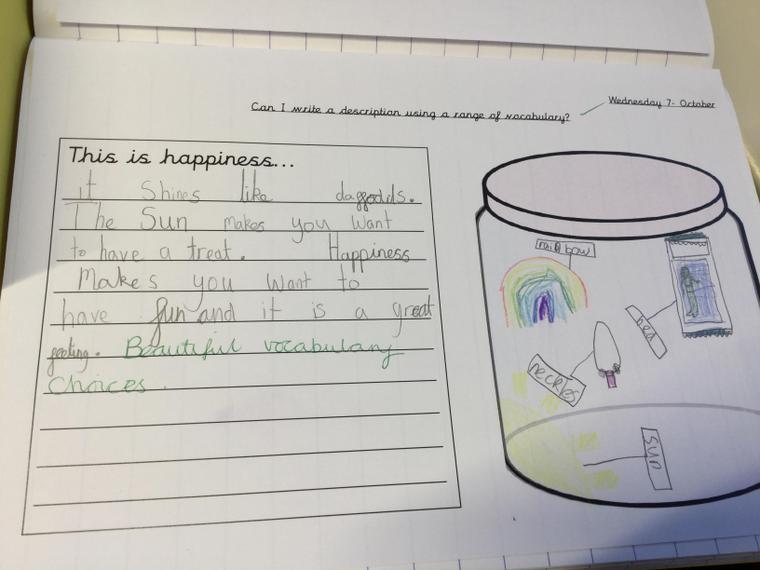 Can I write a description using a range of vocabulary?
Wednesday 7- October
This is happiness...
it Shines like daggodils.
The Sun makes you Want
to have a treat. Happiness
Makes you Want to
have fun and it is a great
geeling. Beautiful vocabulary
Choices.
rainbow
neckles
sun